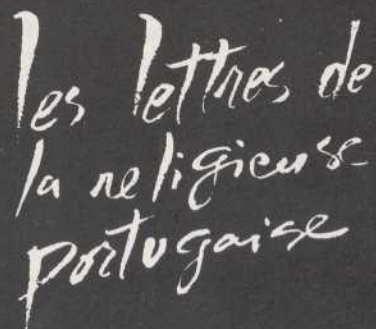 les lettres de
la religieuse
portugaise